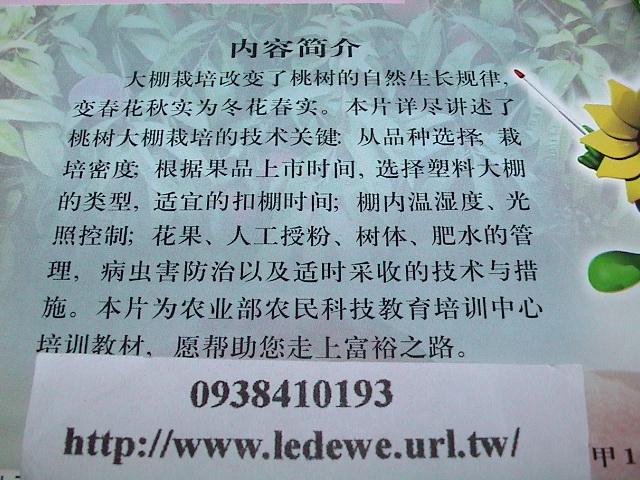 内容简介
大棚栽培改变了桃树的自然生长规律，
变春花秋实为冬花春实。本片详尽讲述了
桃树大棚栽培的技术关键：从品种选择；栽
培密度；根据果品上市时间，选择塑料大棚
的类型，适宜的扣棚时间；棚内温湿度、光
照控制；花果、人工授粉、树体、肥水的管
理，病虫害防治以及适时采收的技术与措
施。本片为农业部农民科技教育培训中心
培训教材，愿帮助您走上富裕之路。
0938410193
http://www.ledewe.url.tw/
甲1